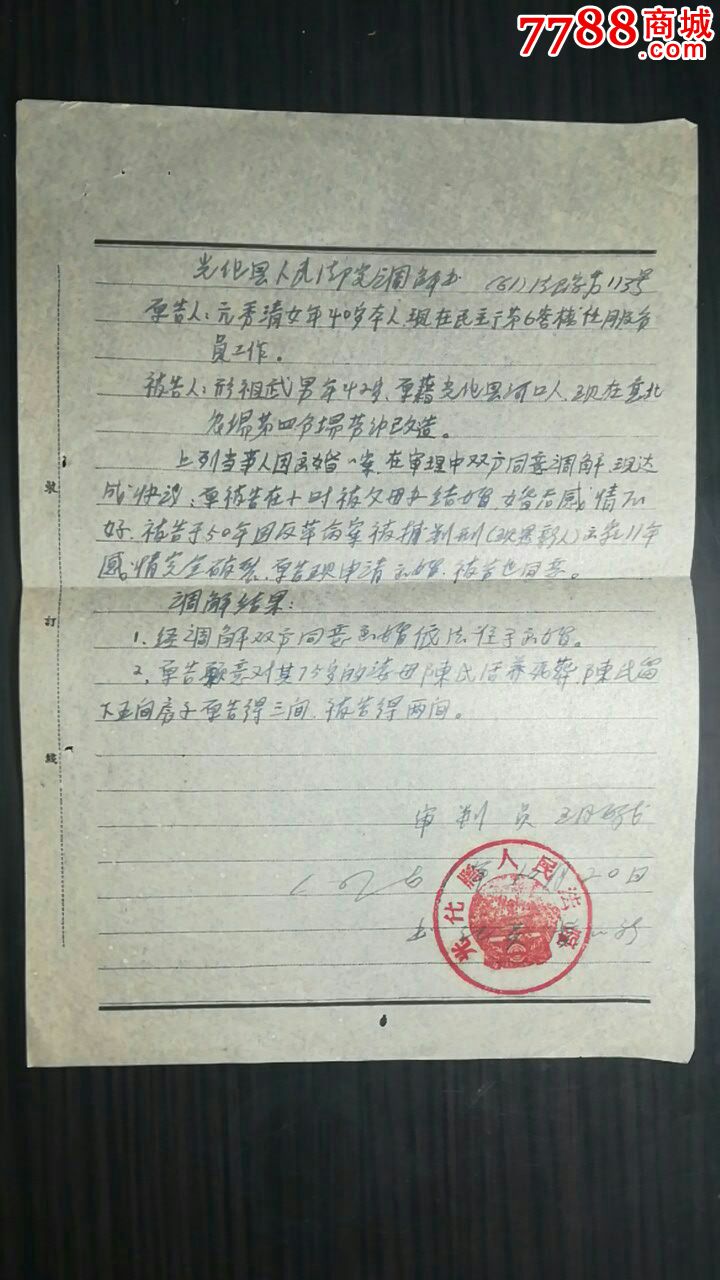 7788商城
.com
光化县人民法院调解书 (61)法民字第113号
原告人：元秀清女年40岁本人，现在民主 第6 服务
员工作。
被告人： 祖武男年42岁，原籍光化县河口人，现在
农场第四分场劳动改造。
上列当事人因离婚一案，在审理中双方同意调解，现达
成协议：原被告在 时被父母 结婚，婚后感情不
好，被告于50年因反革命案被捕判刑( ) 11年
感情完全破裂，原告现申请离婚，被告也同意。
调解结果：
1、经调解双方同意离婚依法准予离婚。
2、原告愿意对其75岁的婆母陳氏活养死葬，陳氏留
下五间房子原告得三间，被告得两间。
审判员
20日
书
光化縣人民法院
装
訂
綫